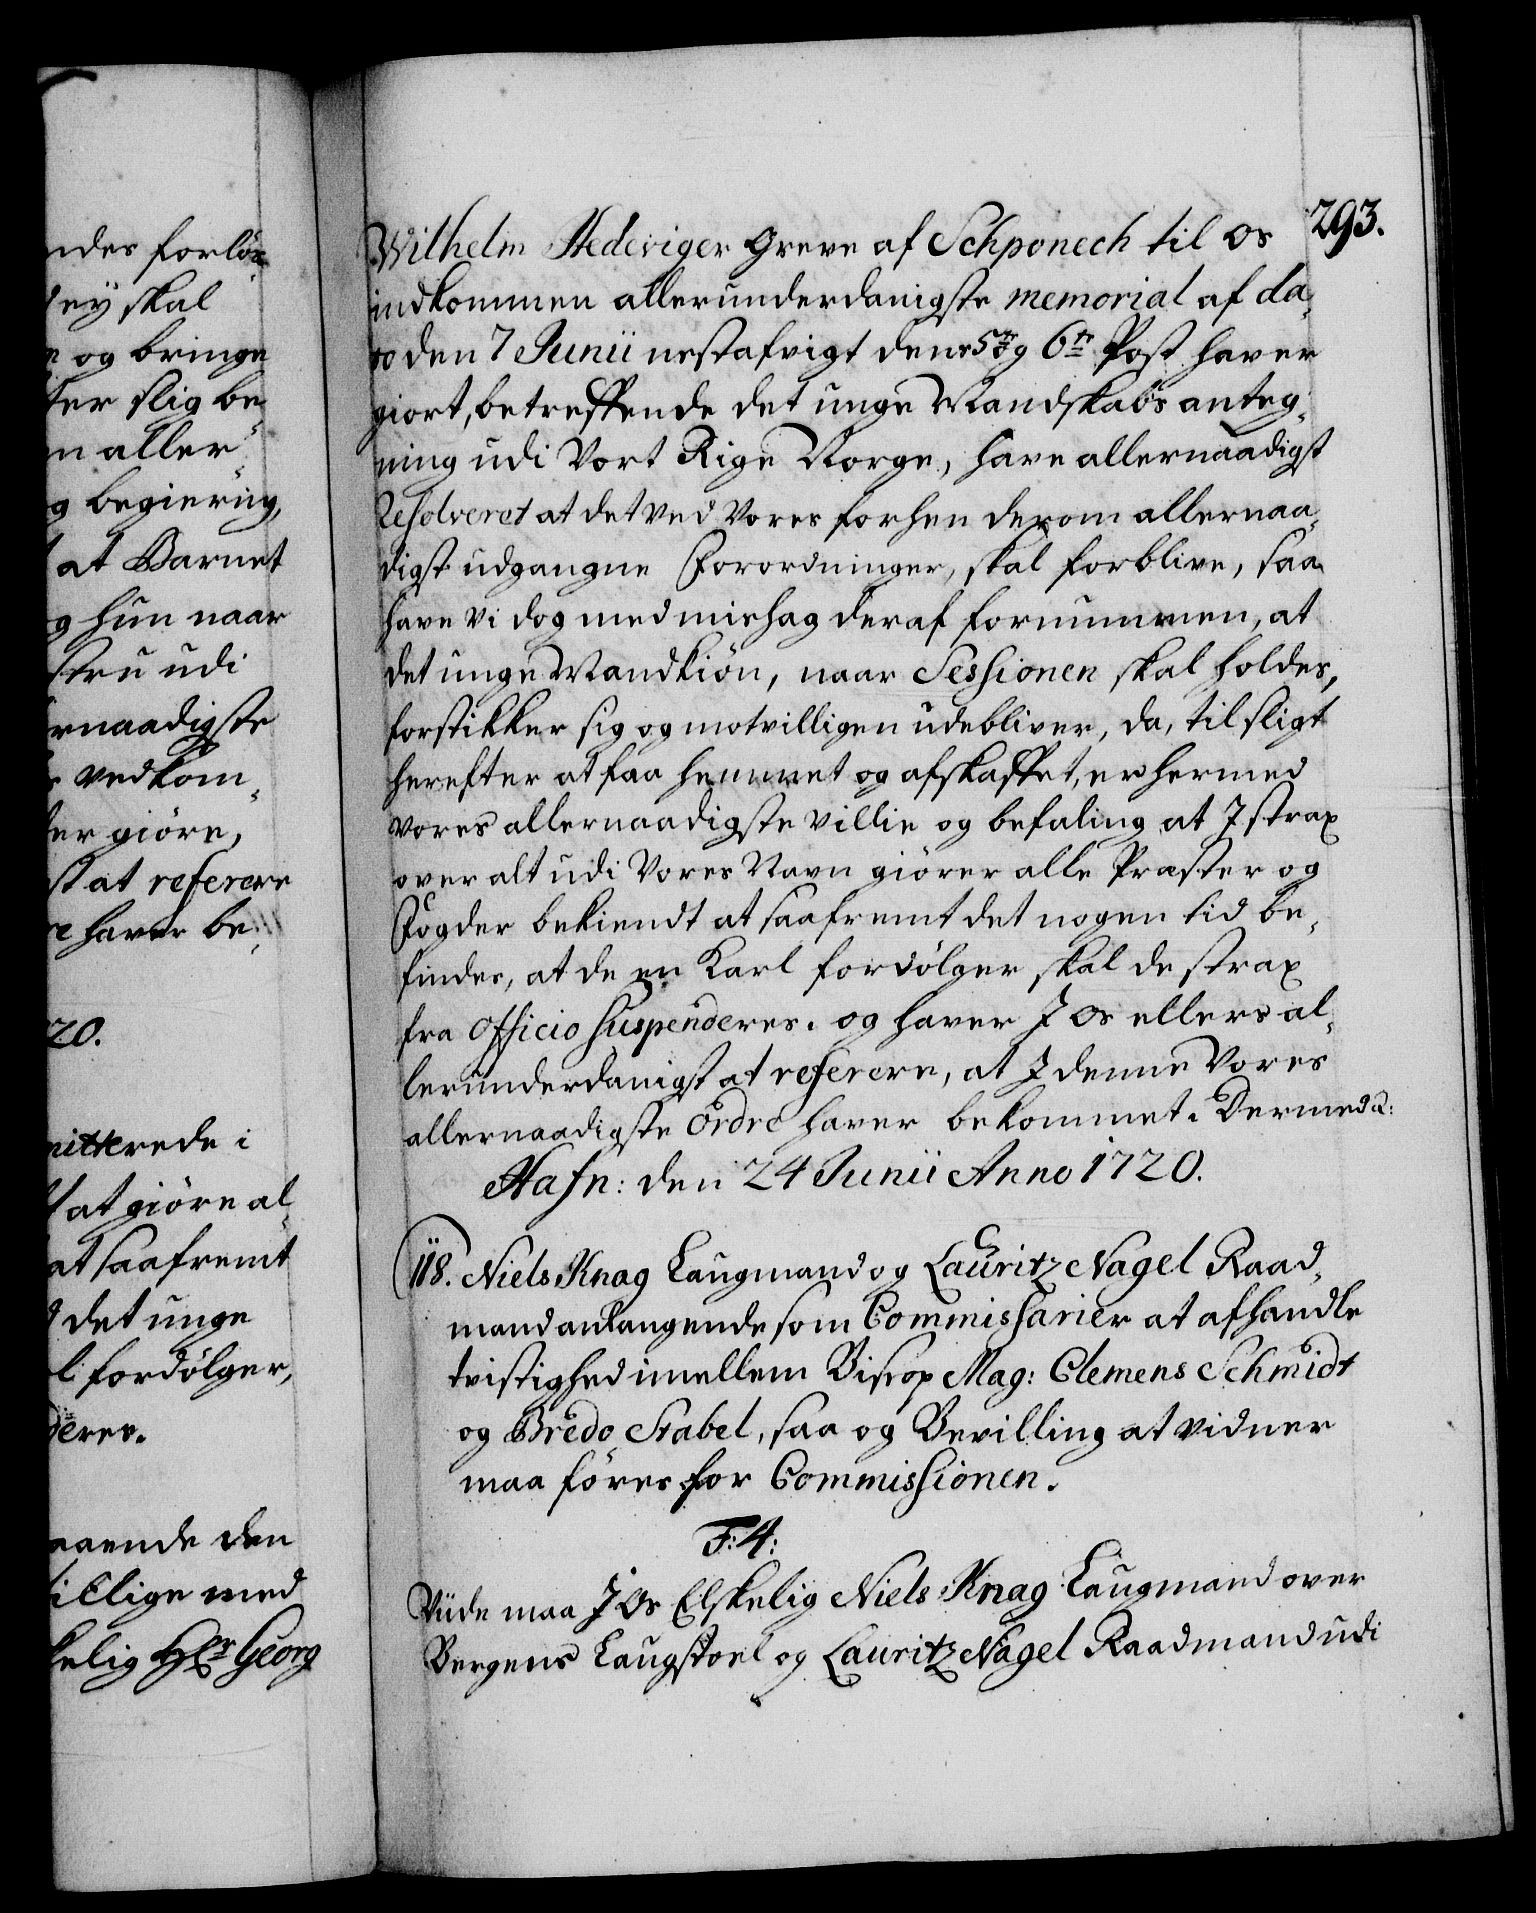 ndes forløs
dey skal
og bringe
ter slig be„
n aller„
g begiering,
at Barnet
g hun naar
stru udi
rnaadigste
vedkom„
ter giøre,
st at referere
re haver be„
20.
mitterede i
at giøre al„
at saafremt
det unge
l fordølger,
deres.
aaende den
tillige med
kelig Hr Georg
293.
Wilhelm Hedeviger Greve af Schponech til os
indkommen allerunderdanigste memorial af da„
to den 7 Junii nestafvigt dens 5te og 6te Post haver
giort, betreffende det unge Mandskabs anteg„
ning udi Vort Rige Norge, have allernaadigst
Resolveret at det ved Vores forhen derom allernaa„
digst udgangne Forordninger, skal forblive, saa
have vi dog med mishag deraf fornummen, at
det unge Mandkiøn, naar Sessionen skal holdes,
forstikker sig og motvilligen udebliver, da, til sligt
herefter at faa hemmet og afskaffet, er hermed
vores allernaadigste villie og befaling at I strax
over alt udi Vores Navn giører alle Præster og
Fogder bekiendt at saafremt det nogen tid be„
findes, at de en Karl fordølger skal de strax
fra Officio suspenderes. og haver I os ellers al„
lerunderdanigst at referere, at I denne Vores
allernaadigste Ordre haver bekommet. Dermed a:
Hafn: den 24 Junii Anno 1720.
118. Niels Knag Laugmand og Lauritz Nagel Raad„
mand anlangende som Commissarier at afhandle
tvistighed imellem Bisop Mag: Clemens Schmidt
og Bredo Stabel, saa og Bevilling at vidner
maa føres for Commissionen.
F: 4:
Viide maa I Os Elskelig Niels Knag Laugmand over
Bergens Laugstoel og Lauritz Nagel Raadmand udi